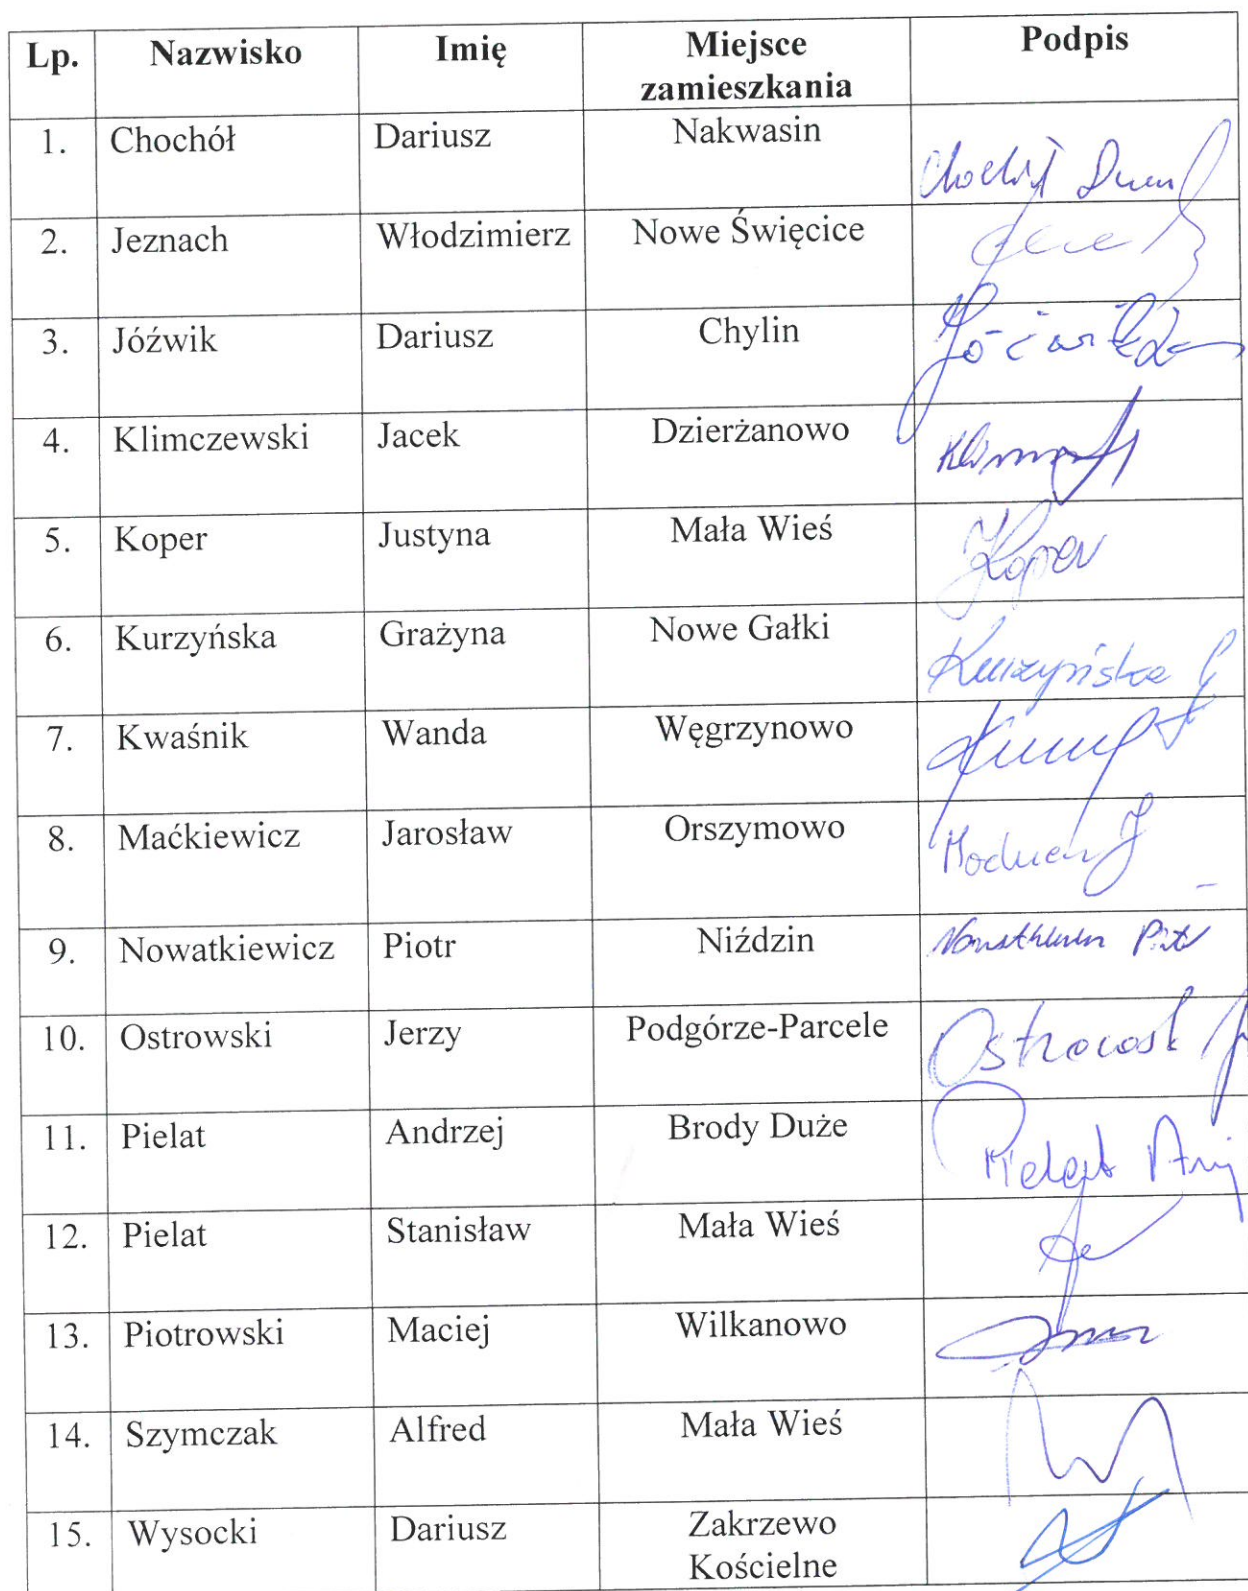 Lp. Nazwisko Imię Miejsce zamieszkania Podpis
1. Chochół Dariusz Nakwasin Chochół
2. Jeznach Włodzimierz Nowe Święcice
3. Jóźwik Dariusz Chylin
4. Klimczewski Jacek Dzierżanowo
5. Koper Justyna Mała Wieś J Koper
6. Kurzyńska Grażyna Nowe Gałki Kurzyńska G
7. Kwaśnik Wanda Węgrzynowo
8. Maćkiewicz Jarosław Orszymowo
9. Nowatkiewicz Piotr Niździn
10. Ostrowski Jerzy Podgórze-Parcele
11. Pielat Andrzej Brody Duże Pielat
12. Pielat Stanisław Mała Wieś
13. Piotrowski Maciej Wilkanowo
14. Szymczak Alfred Mała Wieś
15. Wysocki Dariusz Zakrzewo
Kościelne